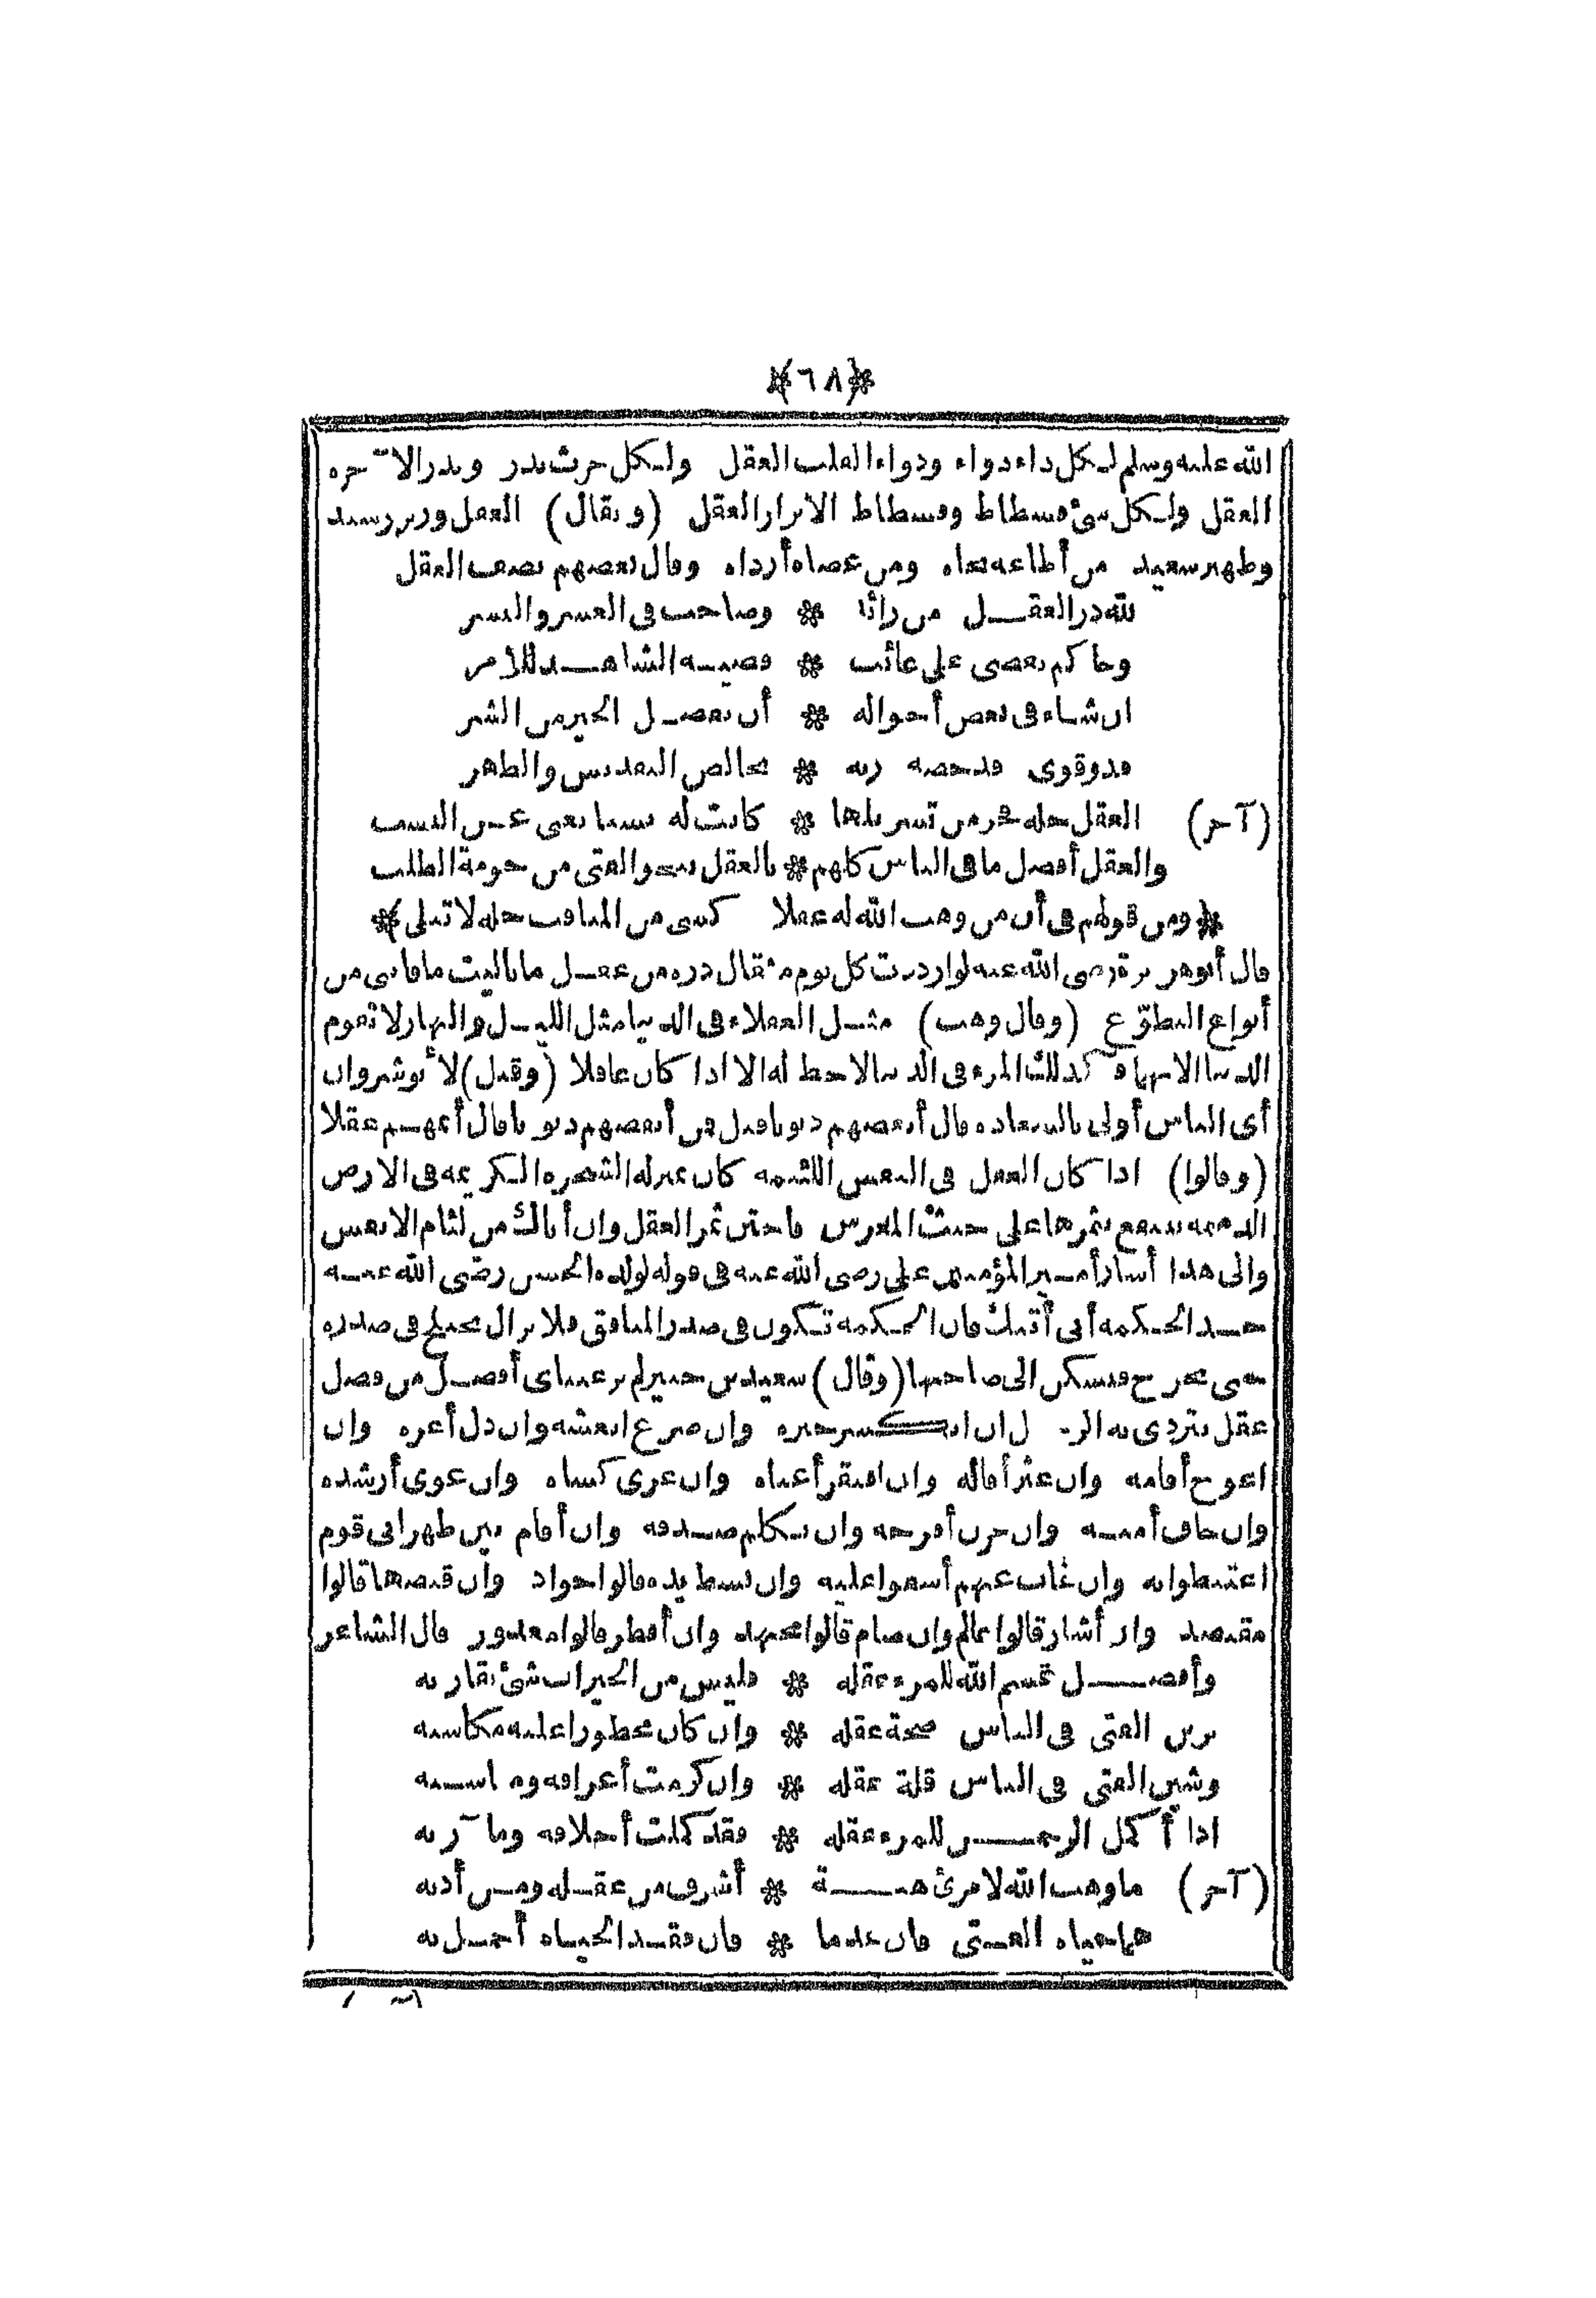 ﴿٦٨﴾
الله عليه وسلم لكل داء دواء ودواء القلب العقل ولكل حرث بذر وبذر الآخرة
العقل ولكل شئ فسطاط وفسطاط الابرار العقل (ويقال) العقل وزير رشيد
وظهير سعيد من أطاعه نجاه ومن عصاه أرداه وقال بعضهم يصف العقل
لله در العقل من رائد * وصاحب فى العسر واليسر
وحاكم يقضى على غائب * قضية الشاهد للامر
ان شاء فى بعض أحواله * أن يفصل الخير من الشر
فذو قوى قد خصه ربه * بخالص التقديس والطهر
(آخر) العقل حلة فخر من تسربلها * كانت له نسبا يغنى عن النسب
والعقل أفضل ما فى الناس كلهم * بالعقل ينجو الفتى من حومة الطلب
* ومن قولهم فى أن من وهب الله له عقلا كسى من المناقب حلة لا تبلى *
قال أبو هريرة رضى الله عنه لو ازددت كل يوم مثقال ذرة من عقل ما باليت ما فاتنى من
أنواع التطوّع (وقال وهب) مثل العقلاء فى الدنيا مثل الليل والنهار لا تقوم
الدنيا الا بهما كذلك المرء فى الدنيا لا حظ له الا اذا كان عاقلا (وقيل) لأنوشروان
أى الناس أولى بالسعادة قال أنقصهم ذنوبا قيل من أنقصهم ذنوبا قال أتمهم عقلا
(وقالوا) اذا كان العقل فى النفس اللئيمة كان بمنزلة الشجرة الكريمة فى الارض
الذميمة ينتفع بثمرها على خبث المغرس فاجتن ثمر العقل وان أتاك من لئام الانفس
والى هذا أشار أمير المؤمنين على رضى الله عنه فى قوله لولده الحسن رضى الله عنه
خذ الحكمة أنى أتتك فان الحكمة تكون فى صدر المنافق فلا يزال تختلج فى صدره
حتى تخرج فتسكن الى صاحبها (وقال) سعيد بن جبير لم تر عيناى أفضل من فضل
عقل يتردى به الرجل ان انكسر جبره وان صرع انعشه وان ذل أعزه وان
اعوج أقامه وان عثر أقاله وان افتقر أغناه وان عرى كساه وان غوى أرشده
وان خاف أمنه وان حزن أفرحه وان تكلم صدقه وان أقام بين ظهرانى قوم
اغتبطوا به وان غاب عنهم أسفوا عليه وان بسط يده قالوا جواد وان قبضها قالوا
مقتصد وان أشار قالوا عالم وان صام قالوا مجتهد وان أفطر قالوا معذور قال الشاعر
وأفضل قسم الله للمرء عقله * فليس من الخيرات شئ يقاربه
يزين الفتى فى الناس صحة عقله * وان كان محظورا عليه مكاسبه
وشين الفتى فى الناس قلة عقله * وان كرمت أعراقه ومناسبه
اذا أكمل الرحمن للمرء عقله * فقد كملت أخلاقه ومآربه
(آخر) ما وهب الله لامرئ هبة * أشرف من عقله ومن أدبه
هما حياة الفتى فان عدما * فان فقد الحياة أجمل به